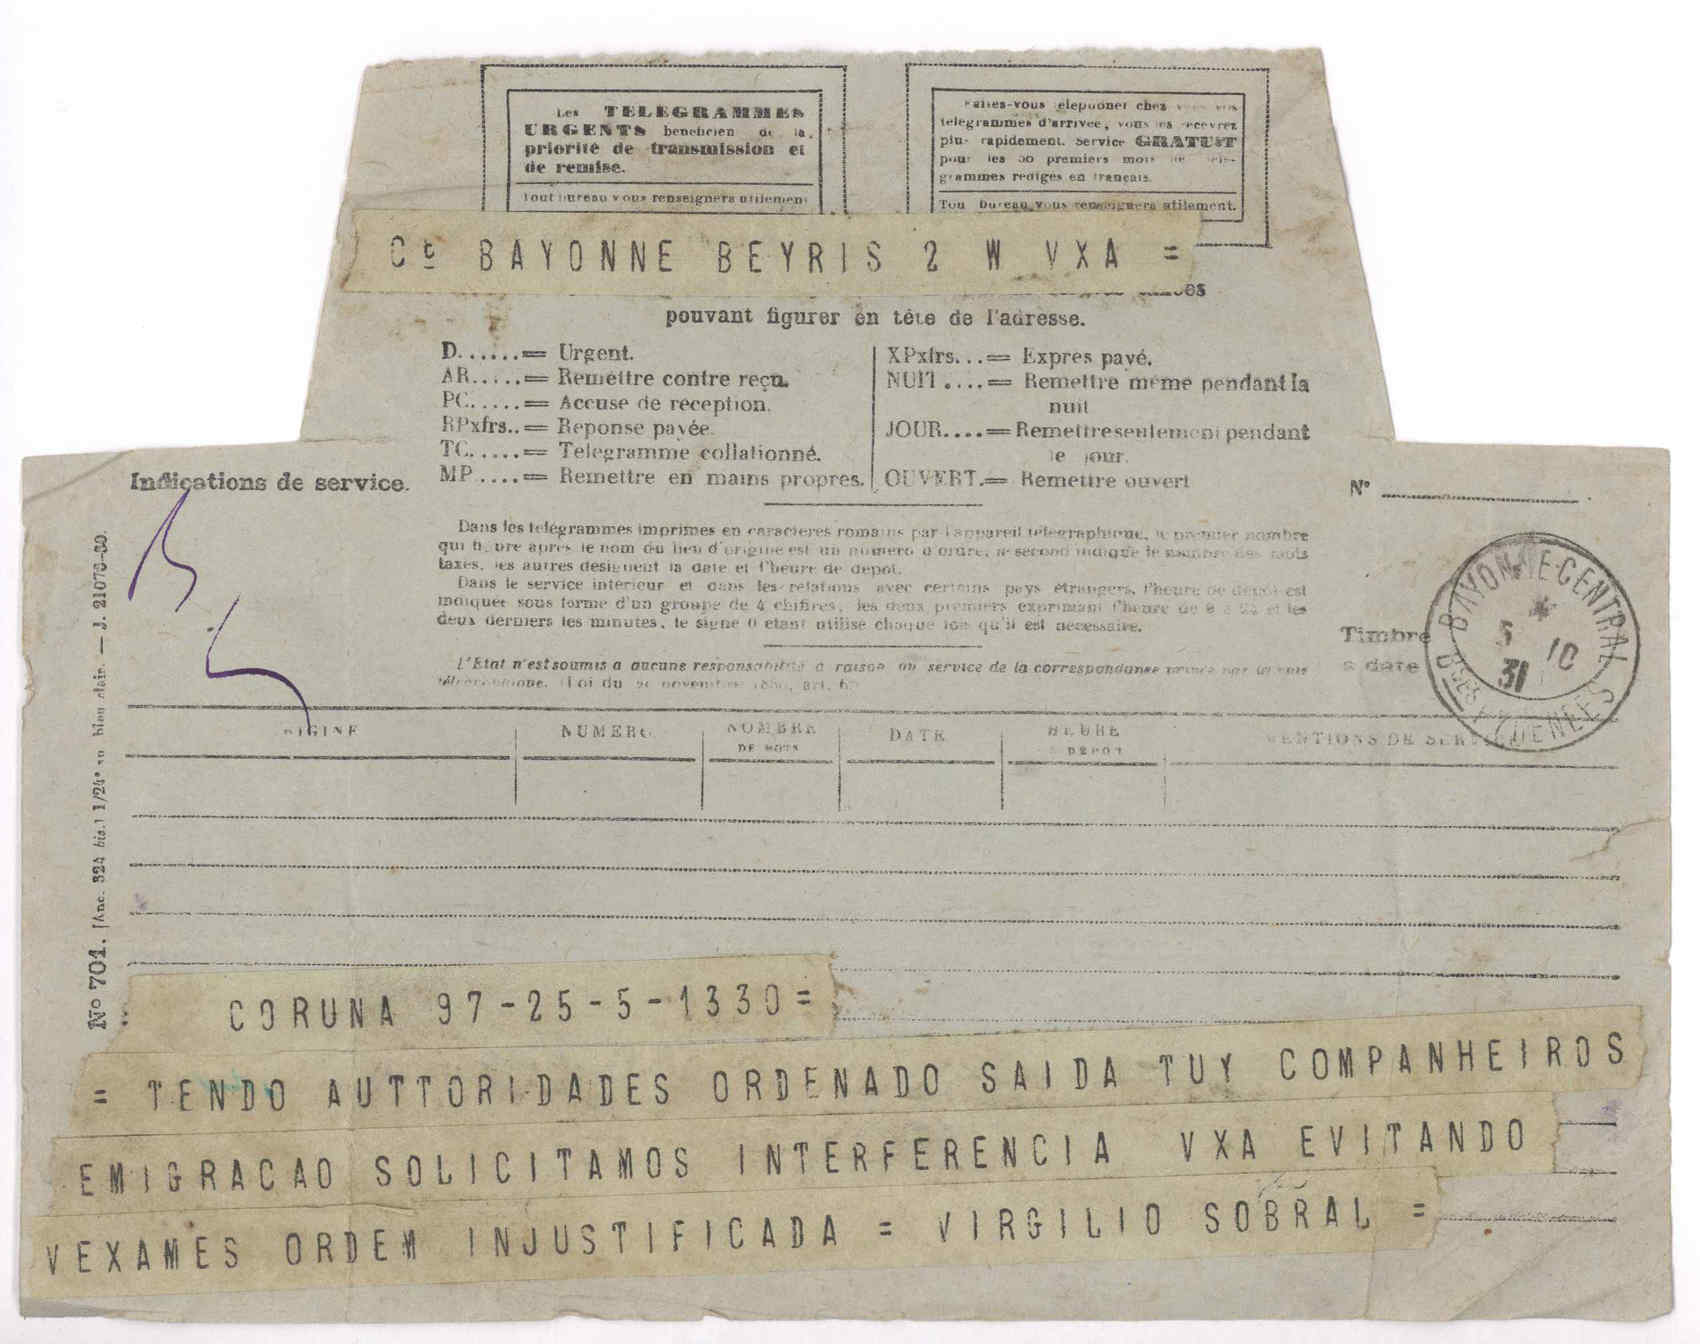 Les TELEGRAMMES
URGENTS beneficien de la
priorité de transmission et
de remise.
Tout bureau vous renseignera utilement
Faites-vous telephoner chez vous vos
telegrammes d'arrivee, vous les recevrez
plus rapidement. Service GRATUIT
pour les premiers mois de tele-
grammes rediges en français.
Tou bureau vous renseignera utilement.
Ct BAYONNE BEYRIS 2 W VXA =
pouvant figurer en tête de l'adresse.
D......= Urgent.
AR.....= Remettre contre reçu.
PC.....= Accuse de reception.
RPxfrs..= Reponse payée.
TC.....= Telegramme collationné.
MP....= Remettre en mains propres.
XPxfrs...= Expres payé.
NUIT....= Remettre même pendant la
nuit
JOUR....= Remettre seulement pendant
le jour.
OUVERT.= Remettre ouvert
Indications de service.
N°
Dans les telégrammes imprimes en caracteres romains par l'appareil télegraphique, le premier nombre
qui figure après le nom du lieu d'origine est un numero d'ordre, le second indique le nombre des mots
taxes, les autres designent la date et l'heure de depot.
Dans le service interieur et dans les relations avec certains pays étrangers, l'heure de depot est
indiquee sous forme d'un groupe de 4 chiffres, les deux premiers exprimant l'heure de 0 a 24 et les
deux derniers les minutes, le signe 0 etant utilisé chaque fois qu'il est necessaire.
L'Etat n'est soumis a aucune responsabilité a raison du service de la correspondance privée par la voie
télégraphique. (Loi du novembre 1850, art. 6
Timbre
a date
BAYONNE-CENTRAL
5 10
31
BSES PYRENEES
N° 701. [Anc. 324 bis.] 1/24e en bleu clair. — J. 21076-30.
ORIGINE
NUMERO
NOMBRE
DE MOTS
DATE
HEURE
DE DEPOT
MENTIONS DE SERVICE
CORUNA 97-25-5-1330=
= TENDO AUTTORIDADES ORDENADO SAIDA TUY COMPANHEIROS
EMIGRACAO SOLICITAMOS INTERFERENCIA VXA EVITANDO
VEXAMES ORDEM INJUSTIFICADA = VIRGILIO SOBRAL =